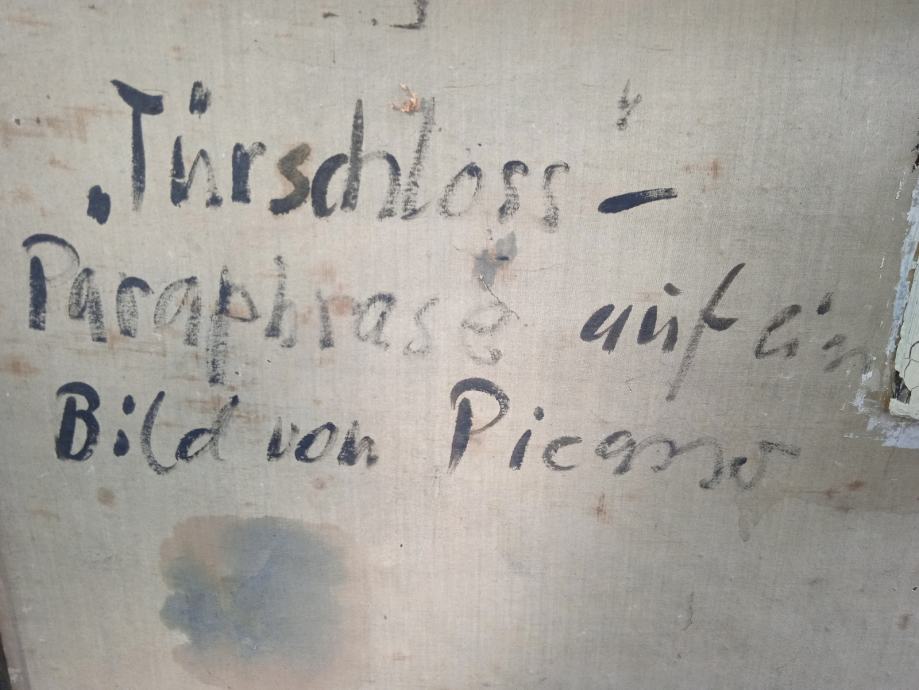 „Türschloss“ –
Paraphrase auf ein
Bild von Picasso